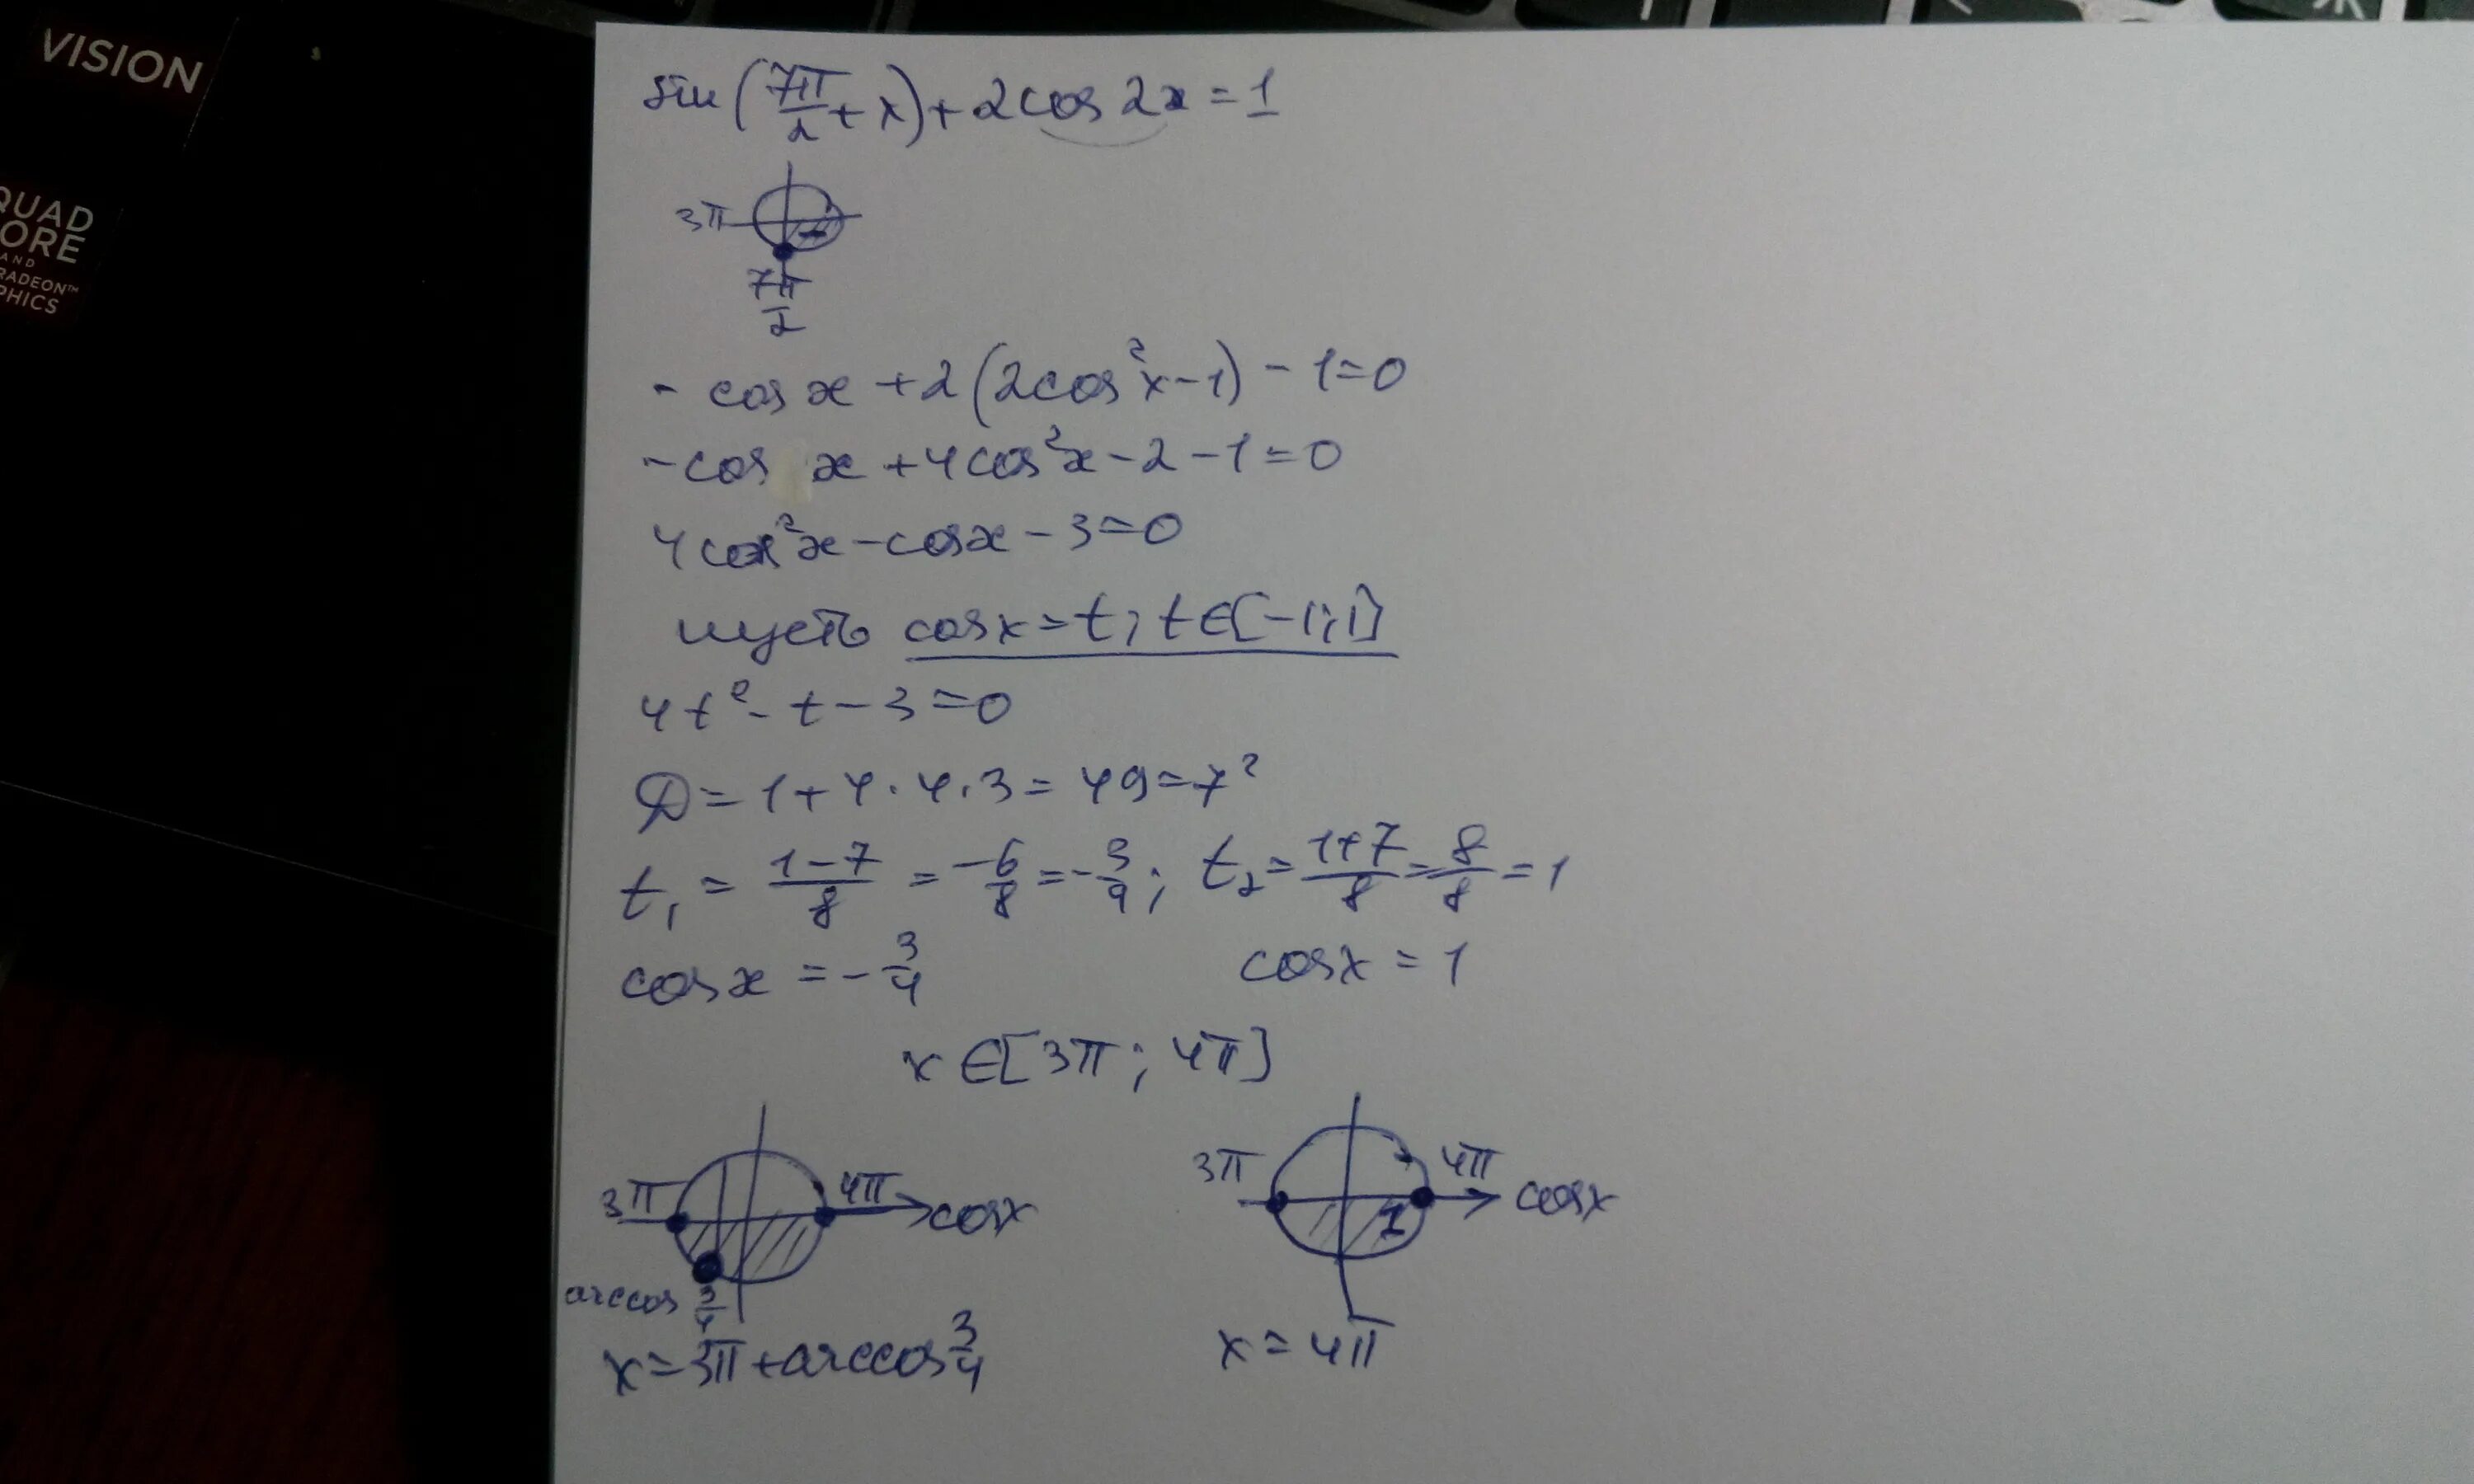 VISION
QUAD
CORE
AND
RADEON™
GRAPHICS
sin(7π/2 + x) + 2cos 2x = 1
3π
7π/2
- cos x + 2(2cos²x - 1) - 1 = 0
- cos x + 4cos²x - 2 - 1 = 0
4cos²x - cosx - 3 = 0
пусть cosx = t, t∈[-1;1]
4t² - t - 3 = 0
D = 1 + 4·4·3 = 49 = 7²
t₁ = (1-7)/8 = -6/8 = -3/4; t₂ = (1+7)/8 = 8/8 = 1
cosx = -3/4 cosx = 1
x∈[3π; 4π]
3π 4π cosx 3π 4π cosx
1
arccos 3/4
x = 3π + arccos 3/4 x = 4π